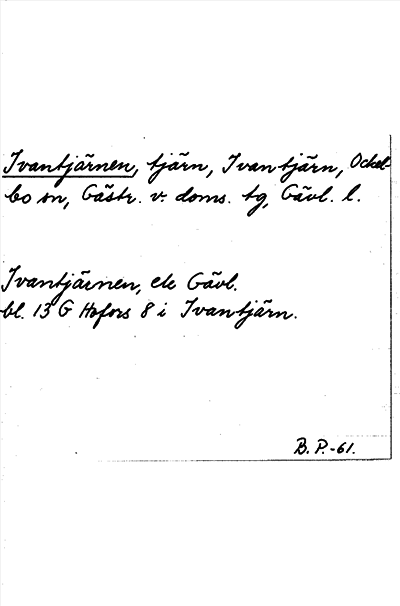 Ivantjärnen, tjärn, Ivantjärn, Ockel-
bo sn, Gästr. v. doms. tg, Gävl. l.
Ivantjärnen, ek Gävl.
bl. 13 G Hofors 8 i Ivantjärn.
B. P. -61.